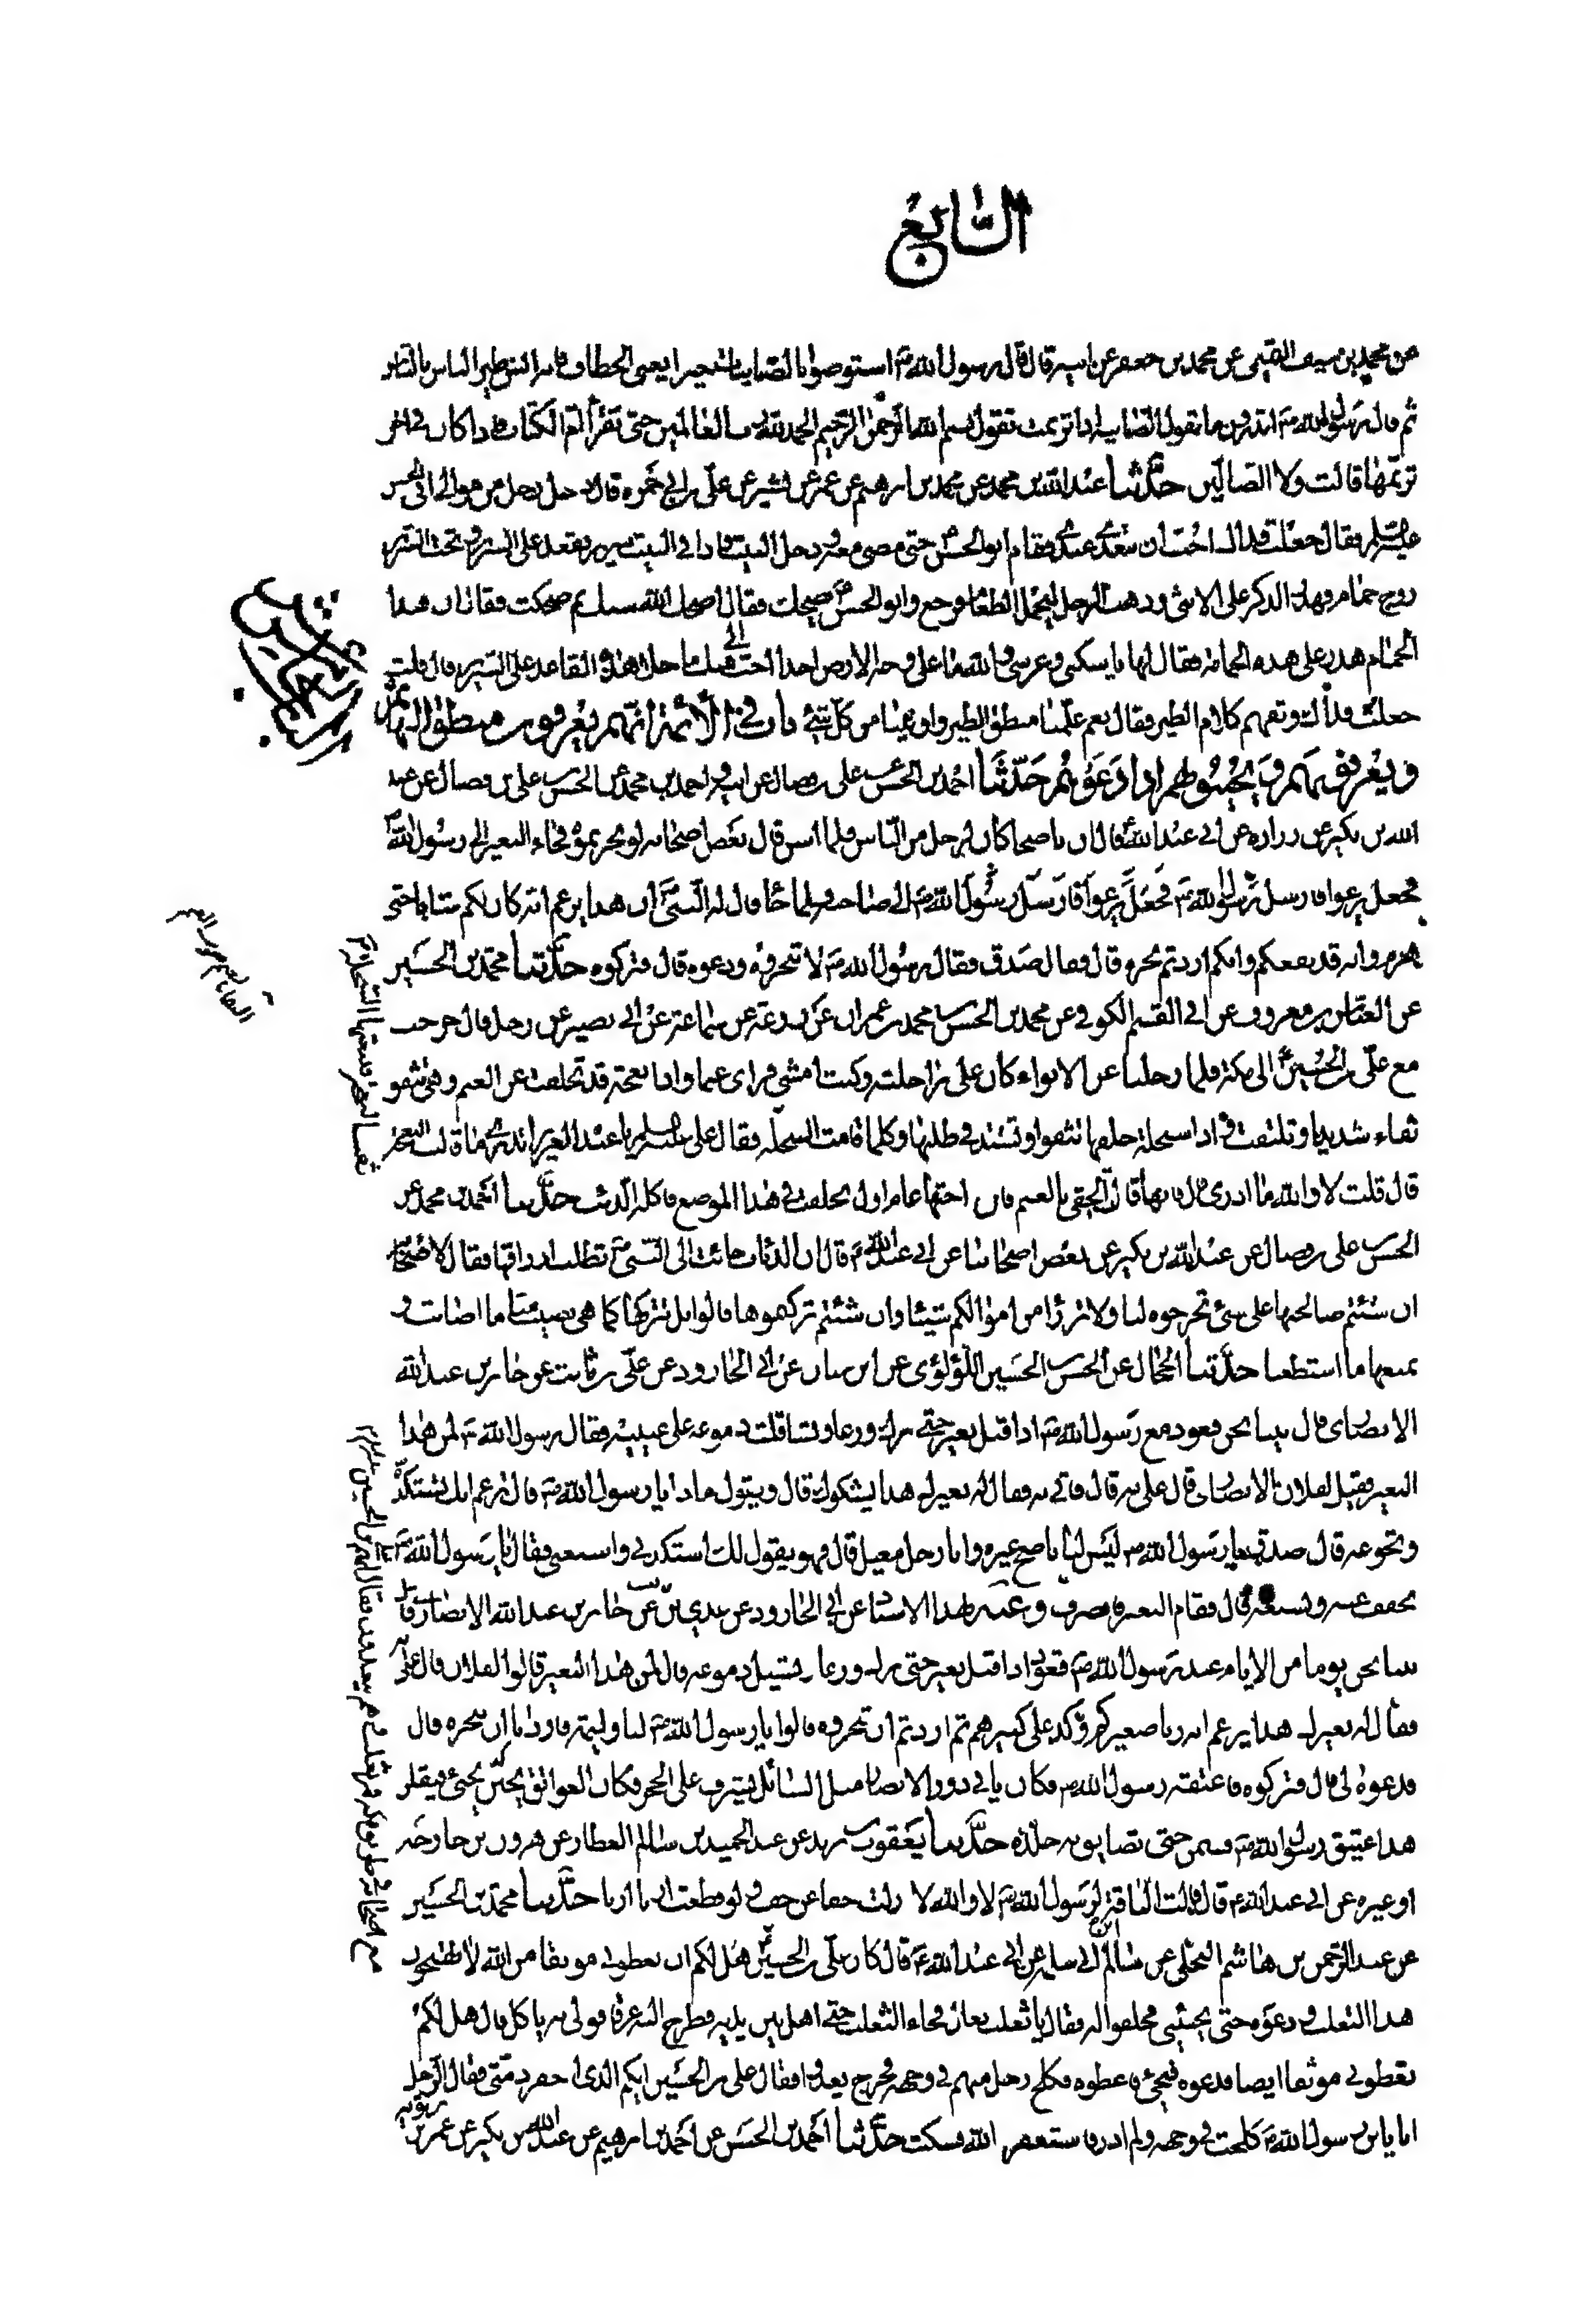 السابع
عن محمد بن سيف التميمي عن محمد بن جعفر عن ابيه قال قال رسول الله ص استوصوا بالصاينات خيرا يعني الخطاف فانه انس طير الناس بالناس
ثم قال رسول الله ص اتدرون ما تقول الصاينة اذا ترنمت تقول بسم الله الرحمن الرحيم الحمد لله رب العالمين حتى تقرأ ام الكتاب فاذا كان في اخر
ترنمها قالت ولا الضالين حدثنا عبد الله بن محمد عن محمد بن ابرهيم عن عمر عن بشير عن علي بن ابي حمزه قال دخل رجل من موالي ابي الحسن
عليه السلم فقال جعلت فداك احب ان تتغدى عندي فقام ابو الحسن حتى مضى معه فدخل البيت فاذا في البيت سرير فقعد على السرير وتحت السرير
زوج حمام فهدر الذكر على الانثى وذهب الرجل ليحمل الطعام فرجع وابو الحسن ع يضحك فقال اضحك الله سنك مم ضحكت فقال ان هذا
الحمام هدر على هذه الحمامة فقال لها يا سكني وعرسي والله ما على وجه الارض احدا احب الي منك ما خلا هذا القاعد على السرير قال قلت
جعلت فداك وتفهم كلام الطير فقال نعم علمنا منطق الطير واوتينا من كل شيء باب في الائمة انهم يعرفون منطق البهائم
ويعرفونهم ويجيبوهم اذا دعوهم حدثنا احمد بن الحسن بن علي بن فضال عن ابيه واحمد بن محمد عن الحسن بن علي بن فضال عن عبد
الله بن بكير عن زراره عن ابي عبد الله ع قال ان ناضحا كان لرجل من الناس فلما اسن قال بعض اصحابه لو نحرتموه فجاء البعير الى رسول الله ص
فجعل يرغوا فارسل رسول الله ص الى صاحبه فلما جاء قال له النبي ص ان هذا يزعم انه كان لكم شابا حتى
هرم وانه قد نفعكم وانكم اردتم نحره قال فقال صدق فقال رسول الله ص لا تنحروه ودعوه قال فتركوه حدثنا محمد بن الحسين
عن العباس بن معروف عن ابي القسم الكوفي عن محمد بن الحسن عن محمد بن عمران عن زرعة عن سماعة عن ابي بصير عن رجل قال خرجت
مع علي بن الحسين ع الى مكة فلما رحلنا عن الابواء كان على راحلته وكنت امشي فراى غنما واذا نعجة قد تخلفت عن الغنم وهي تثغو
ثغاء شديدا وتلتفت واذا سخلة خلفها تثغوا وتشتد في طلبها وكلما قامت السخلة فقال علي بن الحسين يا عبد العزيز اتدري ما قالت النعجة
قال قلت لا والله ما ادري قال فانها قالت الحقي بالغنم فان اختها عام اول تخلفت في هذا الموضع فاكلها الذئب حدثنا احمد بن محمد عن
الحسن بن علي بن فضال عن عبد الله بن بكير عن بعض اصحابنا عن ابي عبد الله ع قال ان الذئاب جائت الى النبي ص تطلب ارزاقها فقال لاصحابه
ان شئتم صالحتها على شيء تخرجوه لها ولا ترزا من اموالكم شيئا وان شئتم تركتموها قالوا بل نتركها كما هي تصيب منا ما اصابت و
نمنعها ما استطعنا حدثنا الحجال عن الحسن بن الحسين اللؤلؤي عن ابن سنان عن ابي الجارود عن علي بن ثابت عن جابر بن عبد الله
الانصاري قال بينا نحن قعود مع رسول الله ص اذ اقبل بعير حتى برك ورغا وتساقطت دموعه على عينيه فقال رسول الله ص لمن هذا
البعير فقيل لفلان الانصاري قال علي به قال فاتي به فقال له بعيرك هذا يشكوك قال ويقول ماذا يا رسول الله ص قال يزعم انك تستكده
وتجوعه قال صدق يا رسول الله ص ليس لنا ناضح غيره وانا رجل معيل قال فهو يقول لك استكدني واشبعني فقال يا رسول الله ص
نخفف عنه ونشبعه قال فقام البعير فانصرف وعنه بهذا الاسناد عن ابي الجارود عن عدي بن ثابت عن جابر بن عبد الله الانصاري قال
بينا نحن يوما من الايام عند رسول الله ص قعود اذا اقبل بعير حتى برك ورغا وتسيل دموعه قال لمن هذا البعير قالوا لفلان قال علي به
فقال له بعيرك هذا يزعم انه ربا صغيركم وكد على كبيرهم ثم اردتم ان تنحروه قالوا يا رسول الله ص لنا وليمة فاردنا ان ننحره قال
فدعوه لي قال فتركوه فاعتقه رسول الله ص فكان ياتي دور الانصار مثل السائل يشرف على الحجر فكان العواتق يجبين يجيء فيقلن
هذا عتيق رسول الله ص فسمن حتى تضايق به جلده حدثنا يعقوب بن يزيد عن عبد الحميد بن سالم العطار عن هرون بن خارجه
او غيره عن ابي عبد الله ع قال قالت الناقة لرسول الله ص لا والله لا زلت خفا عن خف ولو قطعت اربا اربا حدثنا محمد بن الحسين
عن عبد الرحمن بن هاشم البجلي عن سالم ابي سلمة عن ابي عبد الله ع قال كان علي بن الحسين ع هل لكم ان تعطوني موثقا من الله لا تهيجون
هذا الثعلب ودعوه حتى يجيئني فحلفوا له فقال يا ثعلب تعال فجاء الثعلب حتى اهل بين يديه فطرح اليه عرقا فولى به ياكله قال هل لكم
تعطوني موثقا ايضا فدعوه فيجيء فاعطوه فكلح رجل منهم في وجهه فخرج يعدوا فقال علي بن الحسين ايكم الذي اخفر ذمتي فقال الرجل
انا يابن رسول الله ص كلحت في وجهه ولم ادر فاستغفر الله فسكت حدثنا احمد بن الحسن عن احمد بن ابرهيم عن عبد الله بن بكير عن عمر بن توبه